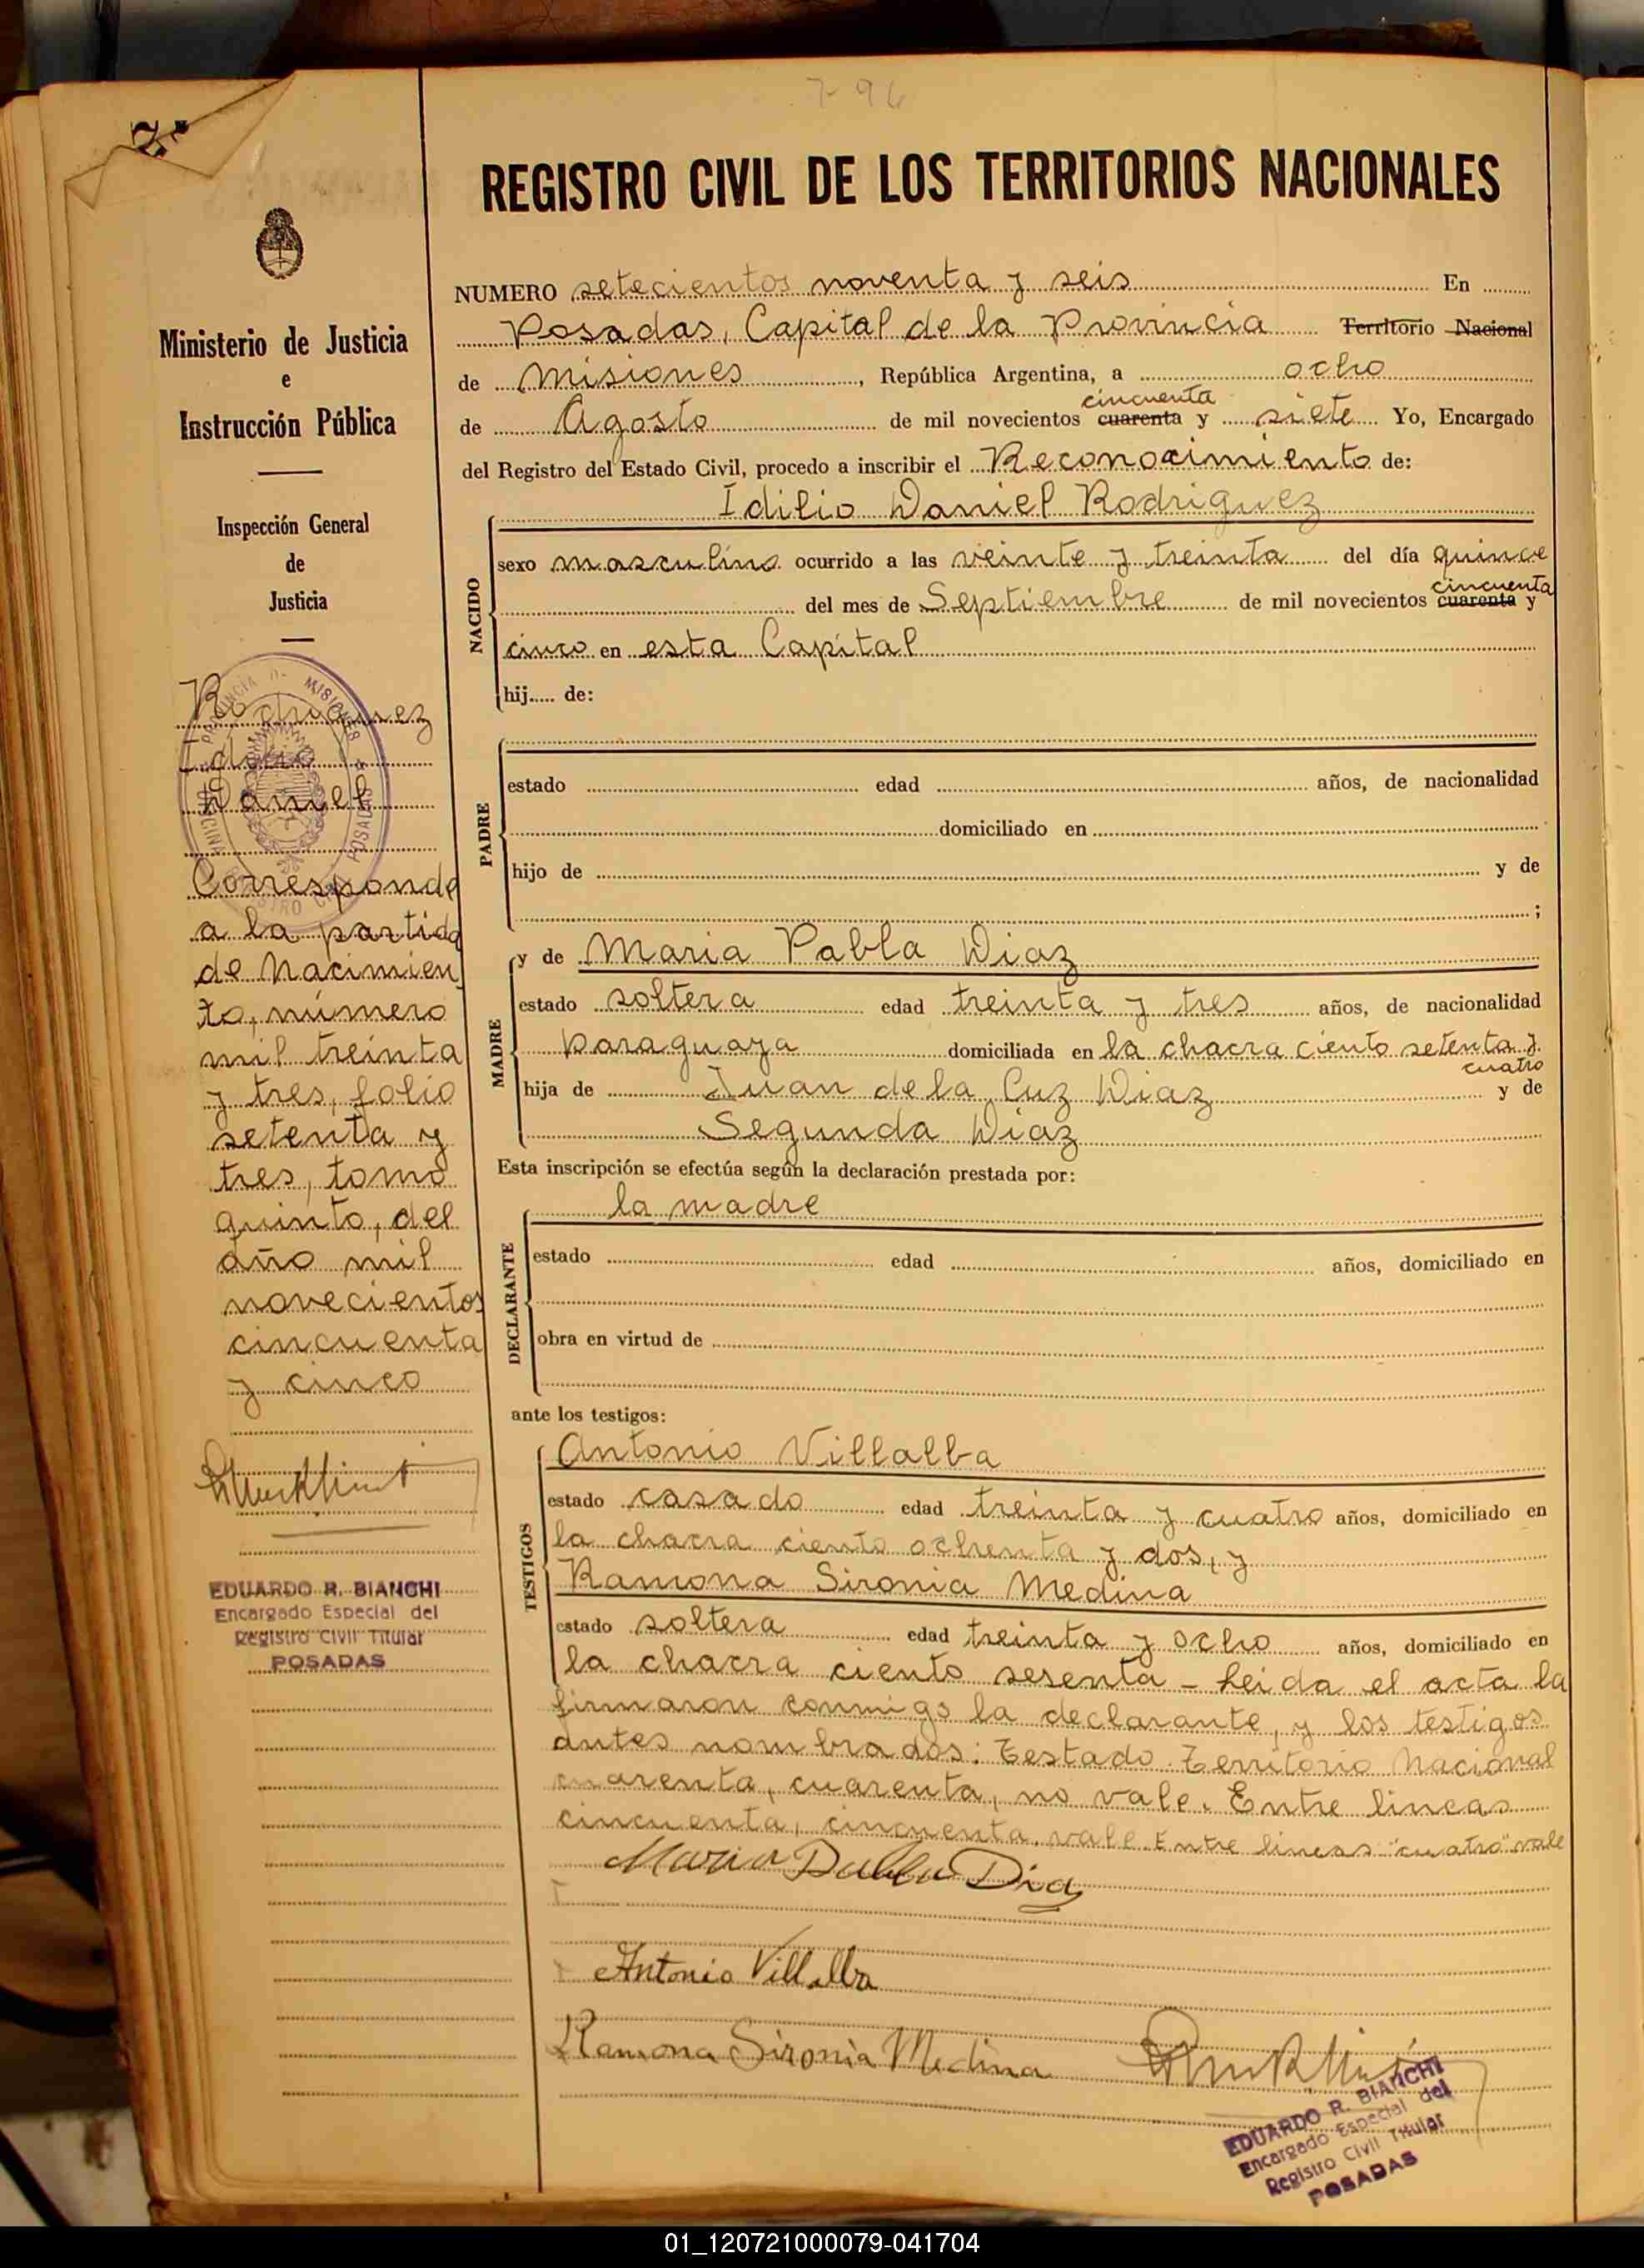 796
REGISTRO CIVIL DE LOS TERRITORIOS NACIONALES
Ministerio de Justicia
e
Instrucción Pública
Inspección General
de
Justicia
Rodriguez
Idilio
Daniel
Corresponde
a la partida
de Nacimien
to, número
mil treinta
y tres, folio
setenta y
tres, tomo
quinto, del
año mil
novecientos
cincuenta
y cinco
EDUARDO R. BIANCHI
Encargado Especial del
Registro Civil Titular
POSADAS
NUMERO setecientos noventa y seis En
Posadas, Capital de la Provincia Territorio Nacional
de Misiones, República Argentina, a ocho
cincuenta
de Agosto de mil novecientos cuarenta y siete Yo, Encargado
del Registro del Estado Civil, procedo a inscribir el Reconocimiento de:
Idilio Daniel Rodriguez
NACIDO
sexo masculino ocurrido a las veinte y treinta del día quince
cincuenta
del mes de Septiembre de mil novecientos cuarenta y
cinco en esta Capital
hij..... de:
PADRE
estado edad años, de nacionalidad
domiciliado en
hijo de y de
;
MADRE
y de Maria Pabla Diaz
estado soltera edad treinta y tres años, de nacionalidad
paraguaya domiciliada en la chacra ciento setenta y
cuatro
hija de Juan de la Cuz Diaz y de
Segunda Diaz
Esta inscripción se efectúa según la declaración prestada por:
la madre
DECLARANTE
estado edad años, domiciliado en
obra en virtud de
ante los testigos:
TESTIGOS
Antonio Villalba
estado casado edad treinta y cuatro años, domiciliado en
la chacra ciento ochenta y dos, y
Ramona Sironia Medina
estado soltera edad treinta y ocho años, domiciliado en
la chacra ciento sesenta - Leida el acta la
firmaron conmigo la declarante, y los testigos
antes nombrados: Testado. Territorio Nacional
cuarenta, cuarenta, no vale. Entre lineas
cincuenta, cincuenta, vale. Entre lineas "cuatro" vale
Maria Pabla Diaz
Antonio Villalba
Ramona Sironia Medina
EDUARDO R. BIANCHI
Encargado Especial del
Registro Civil Titular
POSADAS
01_120721000079-041704